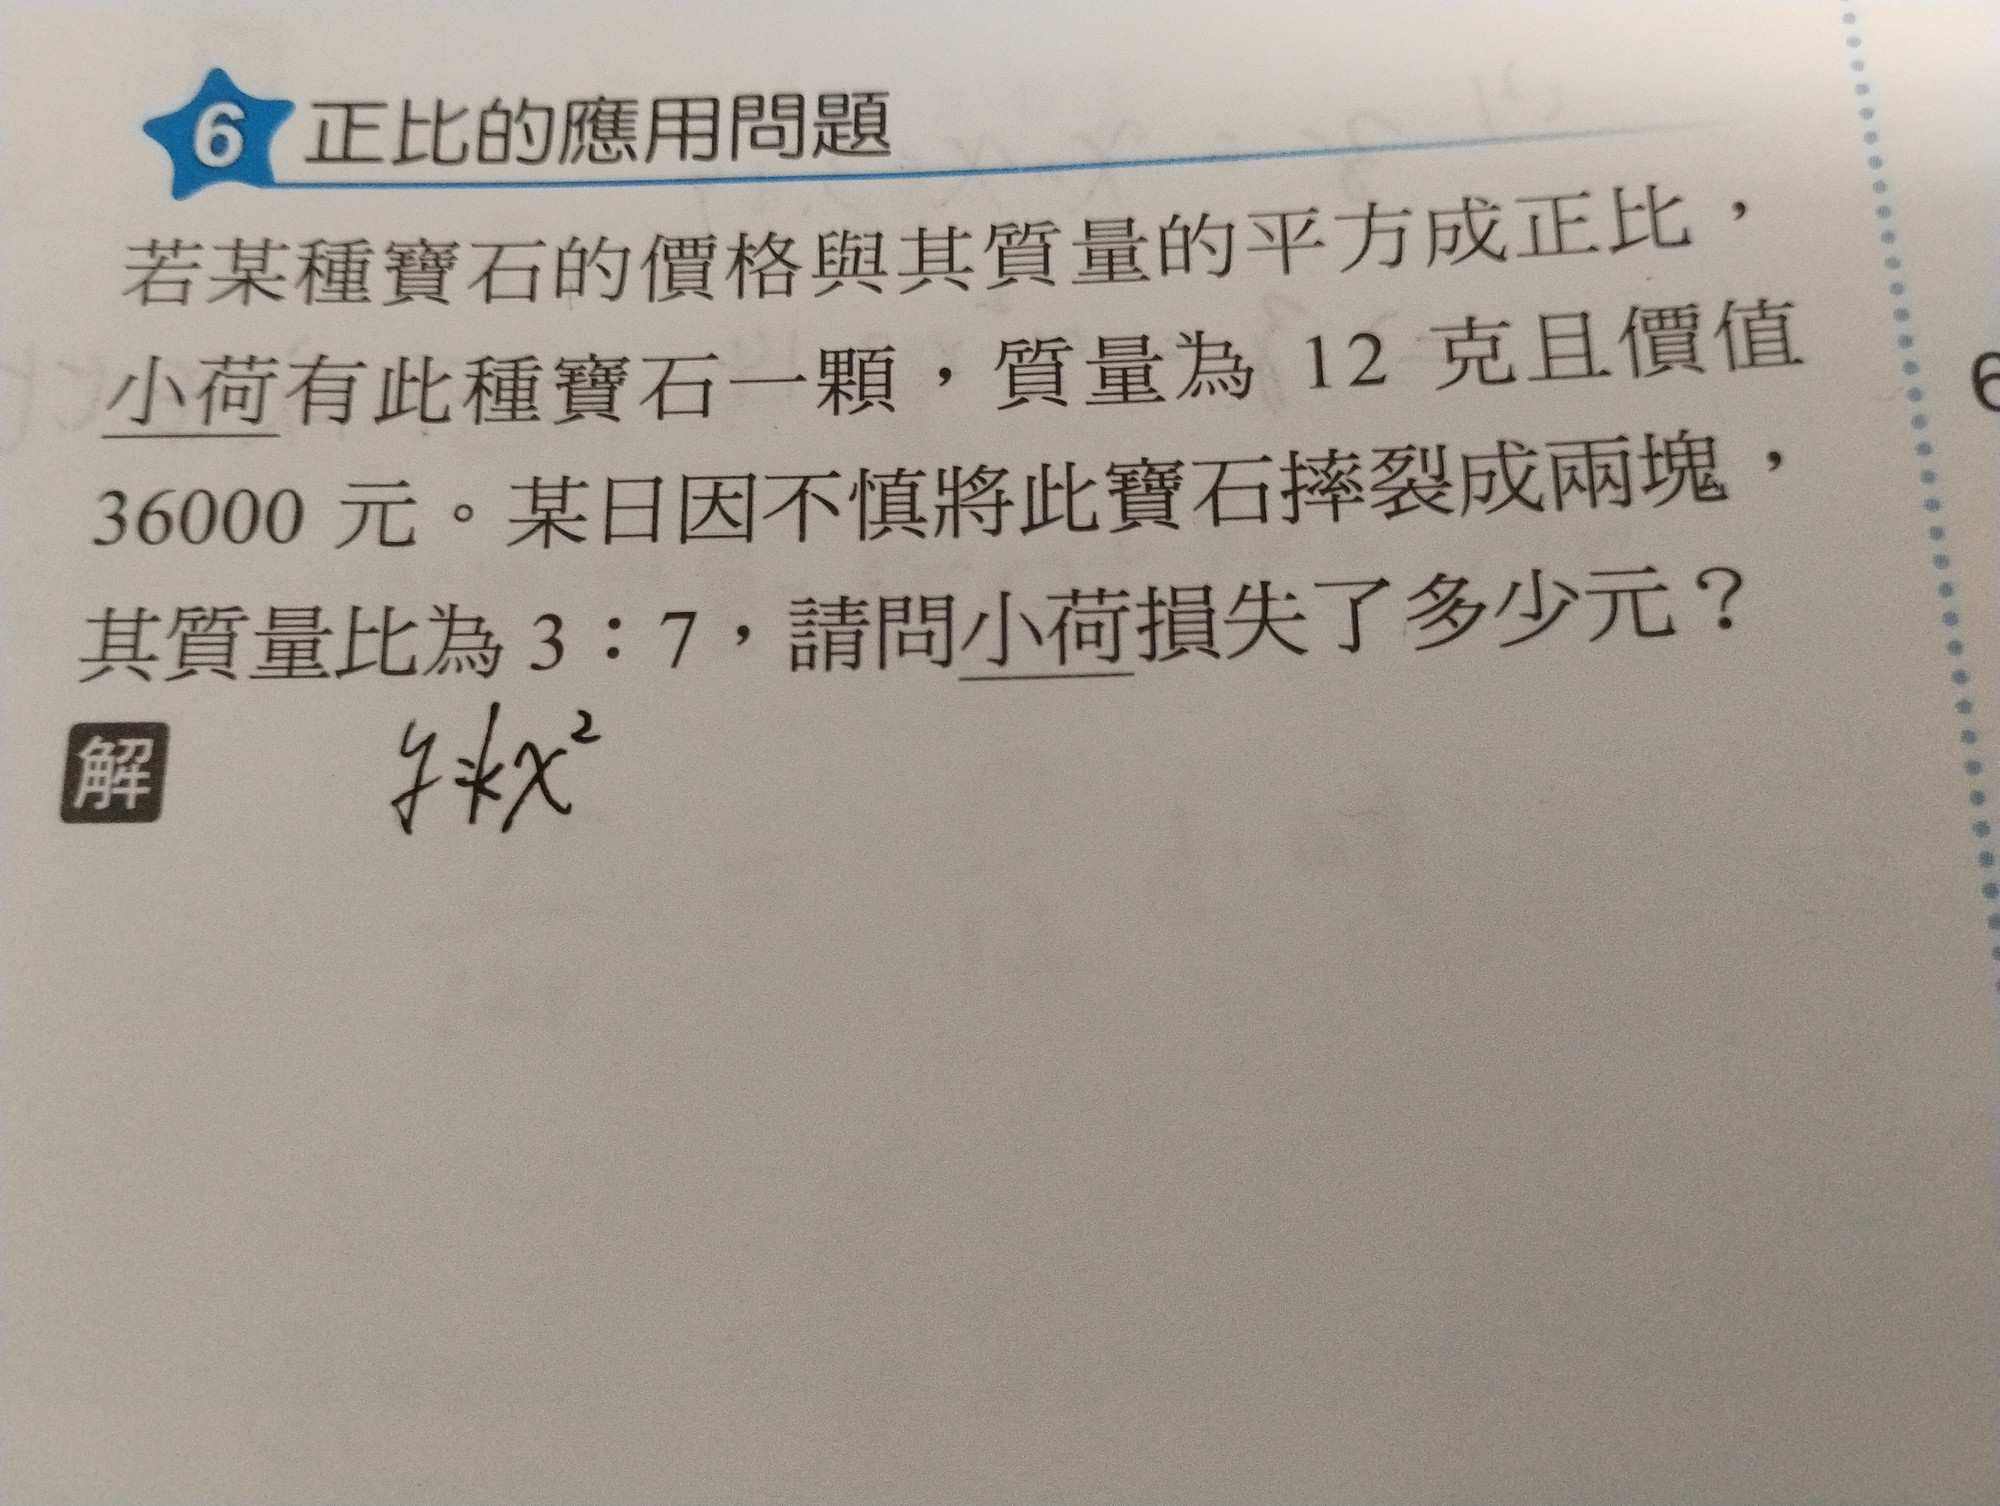 6 正比的應用問題
若某種寶石的價格與其質量的平方成正比，
小荷有此種寶石一顆，質量為 12 克且價值
36000 元。某日因不慎將此寶石摔裂成兩塊，
其質量比為 3：7，請問小荷損失了多少元？
解
y=kx²
6